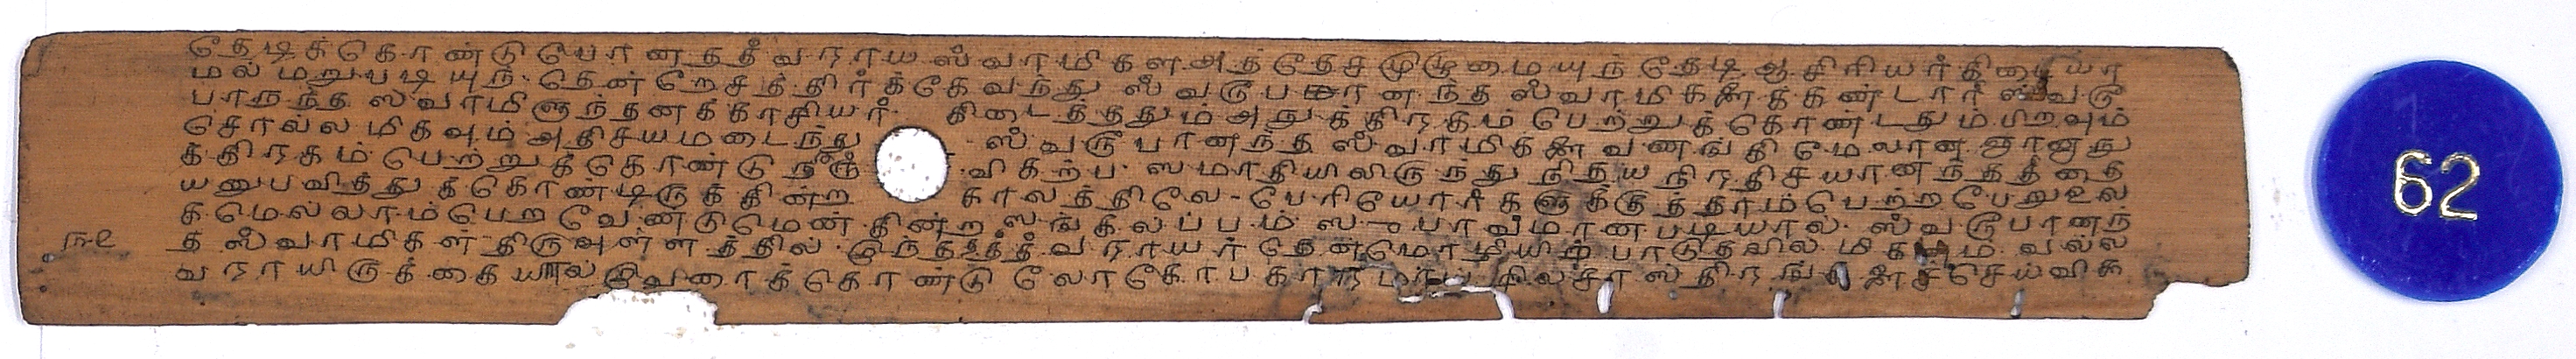 தேடிக்கொண்டு போன தத்துவராய ஸ்வாமிகள் அத்தேச முழுமையுந் தேடி ஆசிரியர் கிடையா
மல் மறுபடியுந் தென்றேசத்திற்க்கே வந்து ஸ்வரூபானந்த ஸ்வாமிகளைக் கண்டார் ஸ்வரூ
பாநந்த ஸ்வாமிளுந் தனக்காசியர் கிடைத்ததும் அநுக்கிரகம் பெற்றுக்கொண்டதும் பிறவும்
சொல்ல மிகவும் அதிசயமடைந்து ஸ்வரூபானந்த ஸ்வாமிகளை வணங்கி மேலான ஞானநு
க்கிரகம் பெற்றுக்கொண்டு நிரு விகற்ப ஸமாதியிலிருந்து நித்ய நிரதிசயானந்தத்தை
யனுபவித்துக்கொண்டிருக்கின்ற காலத்திலே பெரியோர்களுக்குத் தாம் பெற்ற பேறு உல
கமெல்லாம் பெற வேண்டுமென்கின்ற ஸங்கல்ப்பம் ஸுபாவமானபடியால் ஸ்வரூபானந்
௩௨ த ஸ்வாமிகள் திருவுள்ளத்தில் இந்த தத்துவராயர் தென்மொழியிற் பாடுதலில் மிகவும் வல்ல
வராயிருக்கையால் இவரைக்கொண்டு லோகோபகாரமாய் சில சாஸ்திரங்களைச் செய்விக்
62